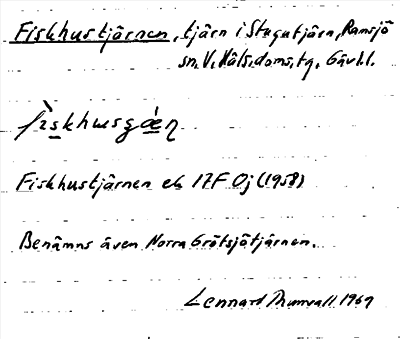 Fiskhustjärnen, tjärn i Stugutjärn, Ramsjö
sn, V. Häls. doms, tg, Gävl. l.
Fiskhustjärnen ek 17F Oj (1958)
Benämns även Norra Grötsjötjärnen.
Lennard Thunvall 1969